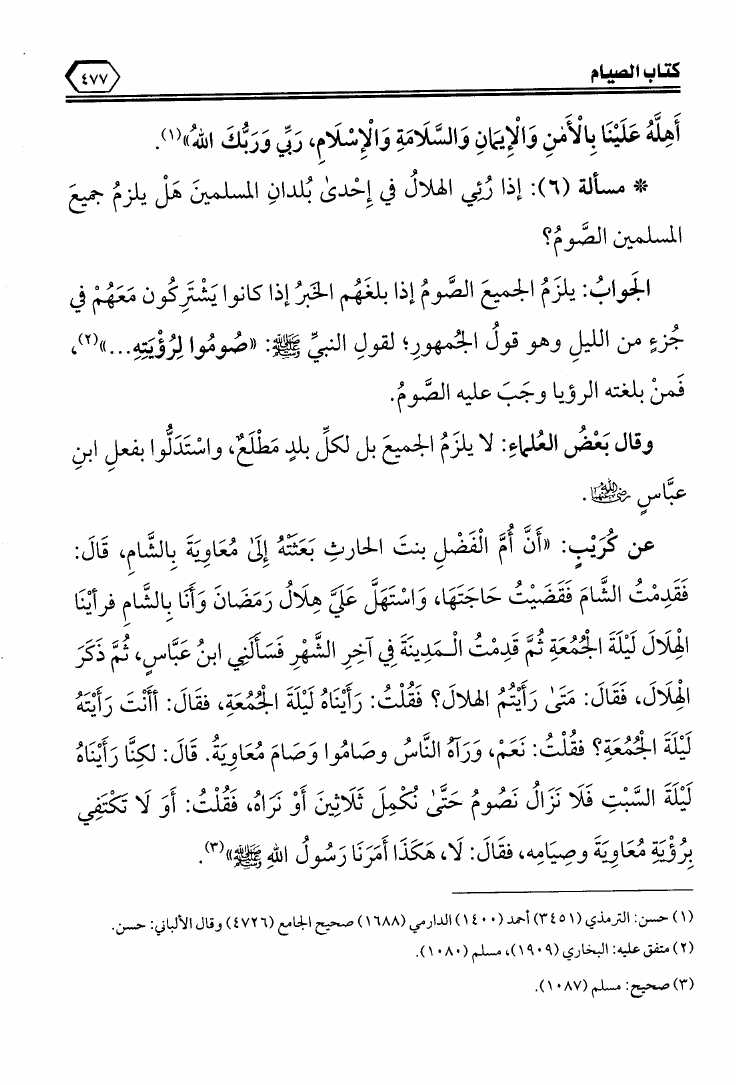 كتاب الصيام
٤٧٧
أَهِلَّهُ عَلَيْنَا بِالْأَمْنِ وَالْإِيمَانِ وَالسَّلَامَةِ وَالْإِسْلَامِ، رَبِّي وَرَبُّكَ اللهُ»(١).
* مسألة (٦): إذا رُئِي الهلالُ في إِحْدىٰ بُلدانِ المسلمينَ هَلْ يلزمُ جميعَ
المسلمين الصَّومُ؟
الجَوابُ: يلزَمُ الجميعَ الصَّومُ إذا بلغَهُم الخبَرُ إذا كانوا يَشْتَرِكُون مَعَهُمْ في
جُزءٍ من الليلِ وهو قولُ الجُمهورِ؛ لقولِ النبيِّ ﷺ: «صُومُوا لِرُؤْيَتِهِ...»(٢)،
فَمنْ بلغته الرؤيا وجَبَ عليه الصَّومُ.
وقال بَعْضُ العُلماءِ: لا يلزَمُ الجميعَ بل لكلِّ بلدٍ مَطْلَعٌ، واسْتَدَلُّوا بفعلِ ابنِ
عبَّاسٍ رضي الله عنهما.
عن كُرَيْبٍ: «أَنَّ أُمَّ الْفَضْلِ بنتَ الحارثِ بَعَثَتْهُ إِلَىٰ مُعَاوِيَةَ بِالشَّامِ، قَالَ:
فَقَدِمْتُ الشَّامَ فَقَضَيْتُ حَاجَتَهَا، وَاسْتَهَلَّ عَلَيَّ هِلَالُ رَمَضَانَ وَأَنَا بِالشَّامِ فرأيْنَا
الْهِلَالَ لَيْلَةَ الْجُمُعَةِ ثُمَّ قَدِمْتُ الْمَدِينَةَ فِي آخِرِ الشَّهْرِ فَسَأَلَنِي ابنُ عَبَّاسٍ، ثُمَّ ذَكَرَ
الْهِلَالَ، فَقَالَ: مَتَىٰ رَأَيْتُمُ الهلالَ؟ فَقُلْتُ: رَأَيْنَاهُ لَيْلَةَ الْجُمُعَةِ، فقَالَ: أأَنْتَ رَأَيْتَهُ
لَيْلَةَ الْجُمُعَةِ؟ فقُلْتُ: نَعَمْ، وَرَآهُ النَّاسُ وصَامُوا وَصَامَ مُعَاوِيَةُ. قَالَ: لكِنَّا رَأَيْنَاهُ
لَيْلَةَ السَّبْتِ فَلَا نَزَالُ نَصُومُ حَتَّىٰ نُكْمِلَ ثَلَاثِينَ أَوْ نَرَاهُ، فَقُلْتُ: أَوَ لَا تَكْتَفِي
بِرُؤْيَةِ مُعَاوِيَةَ وصِيَامِه، فقَالَ: لَا، هَكَذَا أَمَرَنَا رَسُولُ اللهِ ﷺ»(٣).
(١) حسن: الترمذي (٣٤٥١) أحمد (١٤٠٠) الدارمي (١٦٨٨) صحيح الجامع (٤٧٢٦) وقال الألباني: حسن.
(٢) متفق عليه: البخاري (١٩٠٩)، مسلم (١٠٨٠).
(٣) صحيح: مسلم (١٠٨٧).